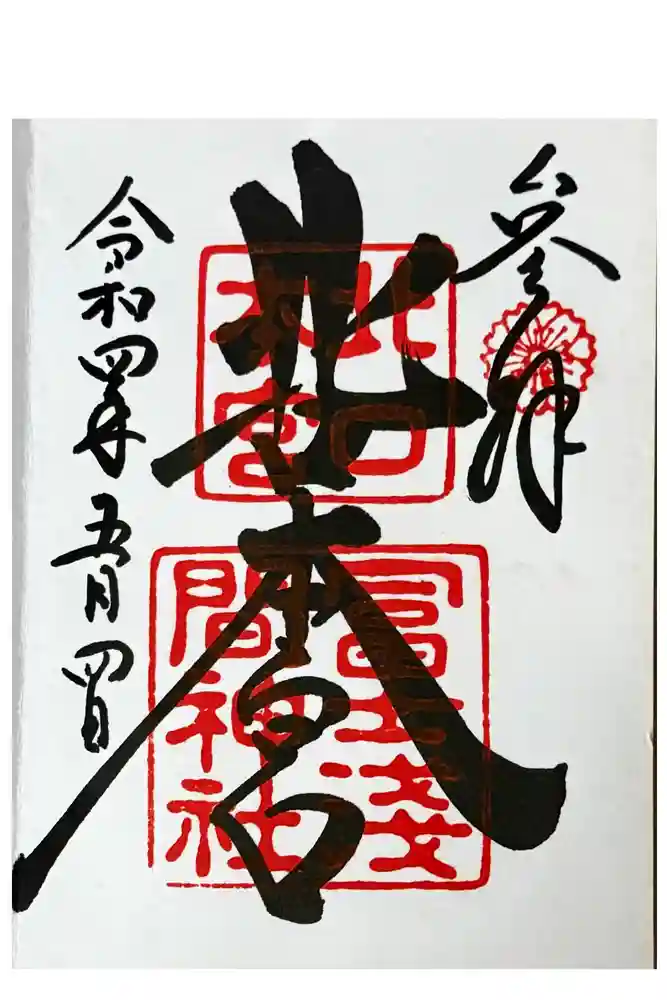 参拝
北本宮
北口
本宮
冨士浅
間神社
令和四年五月四日